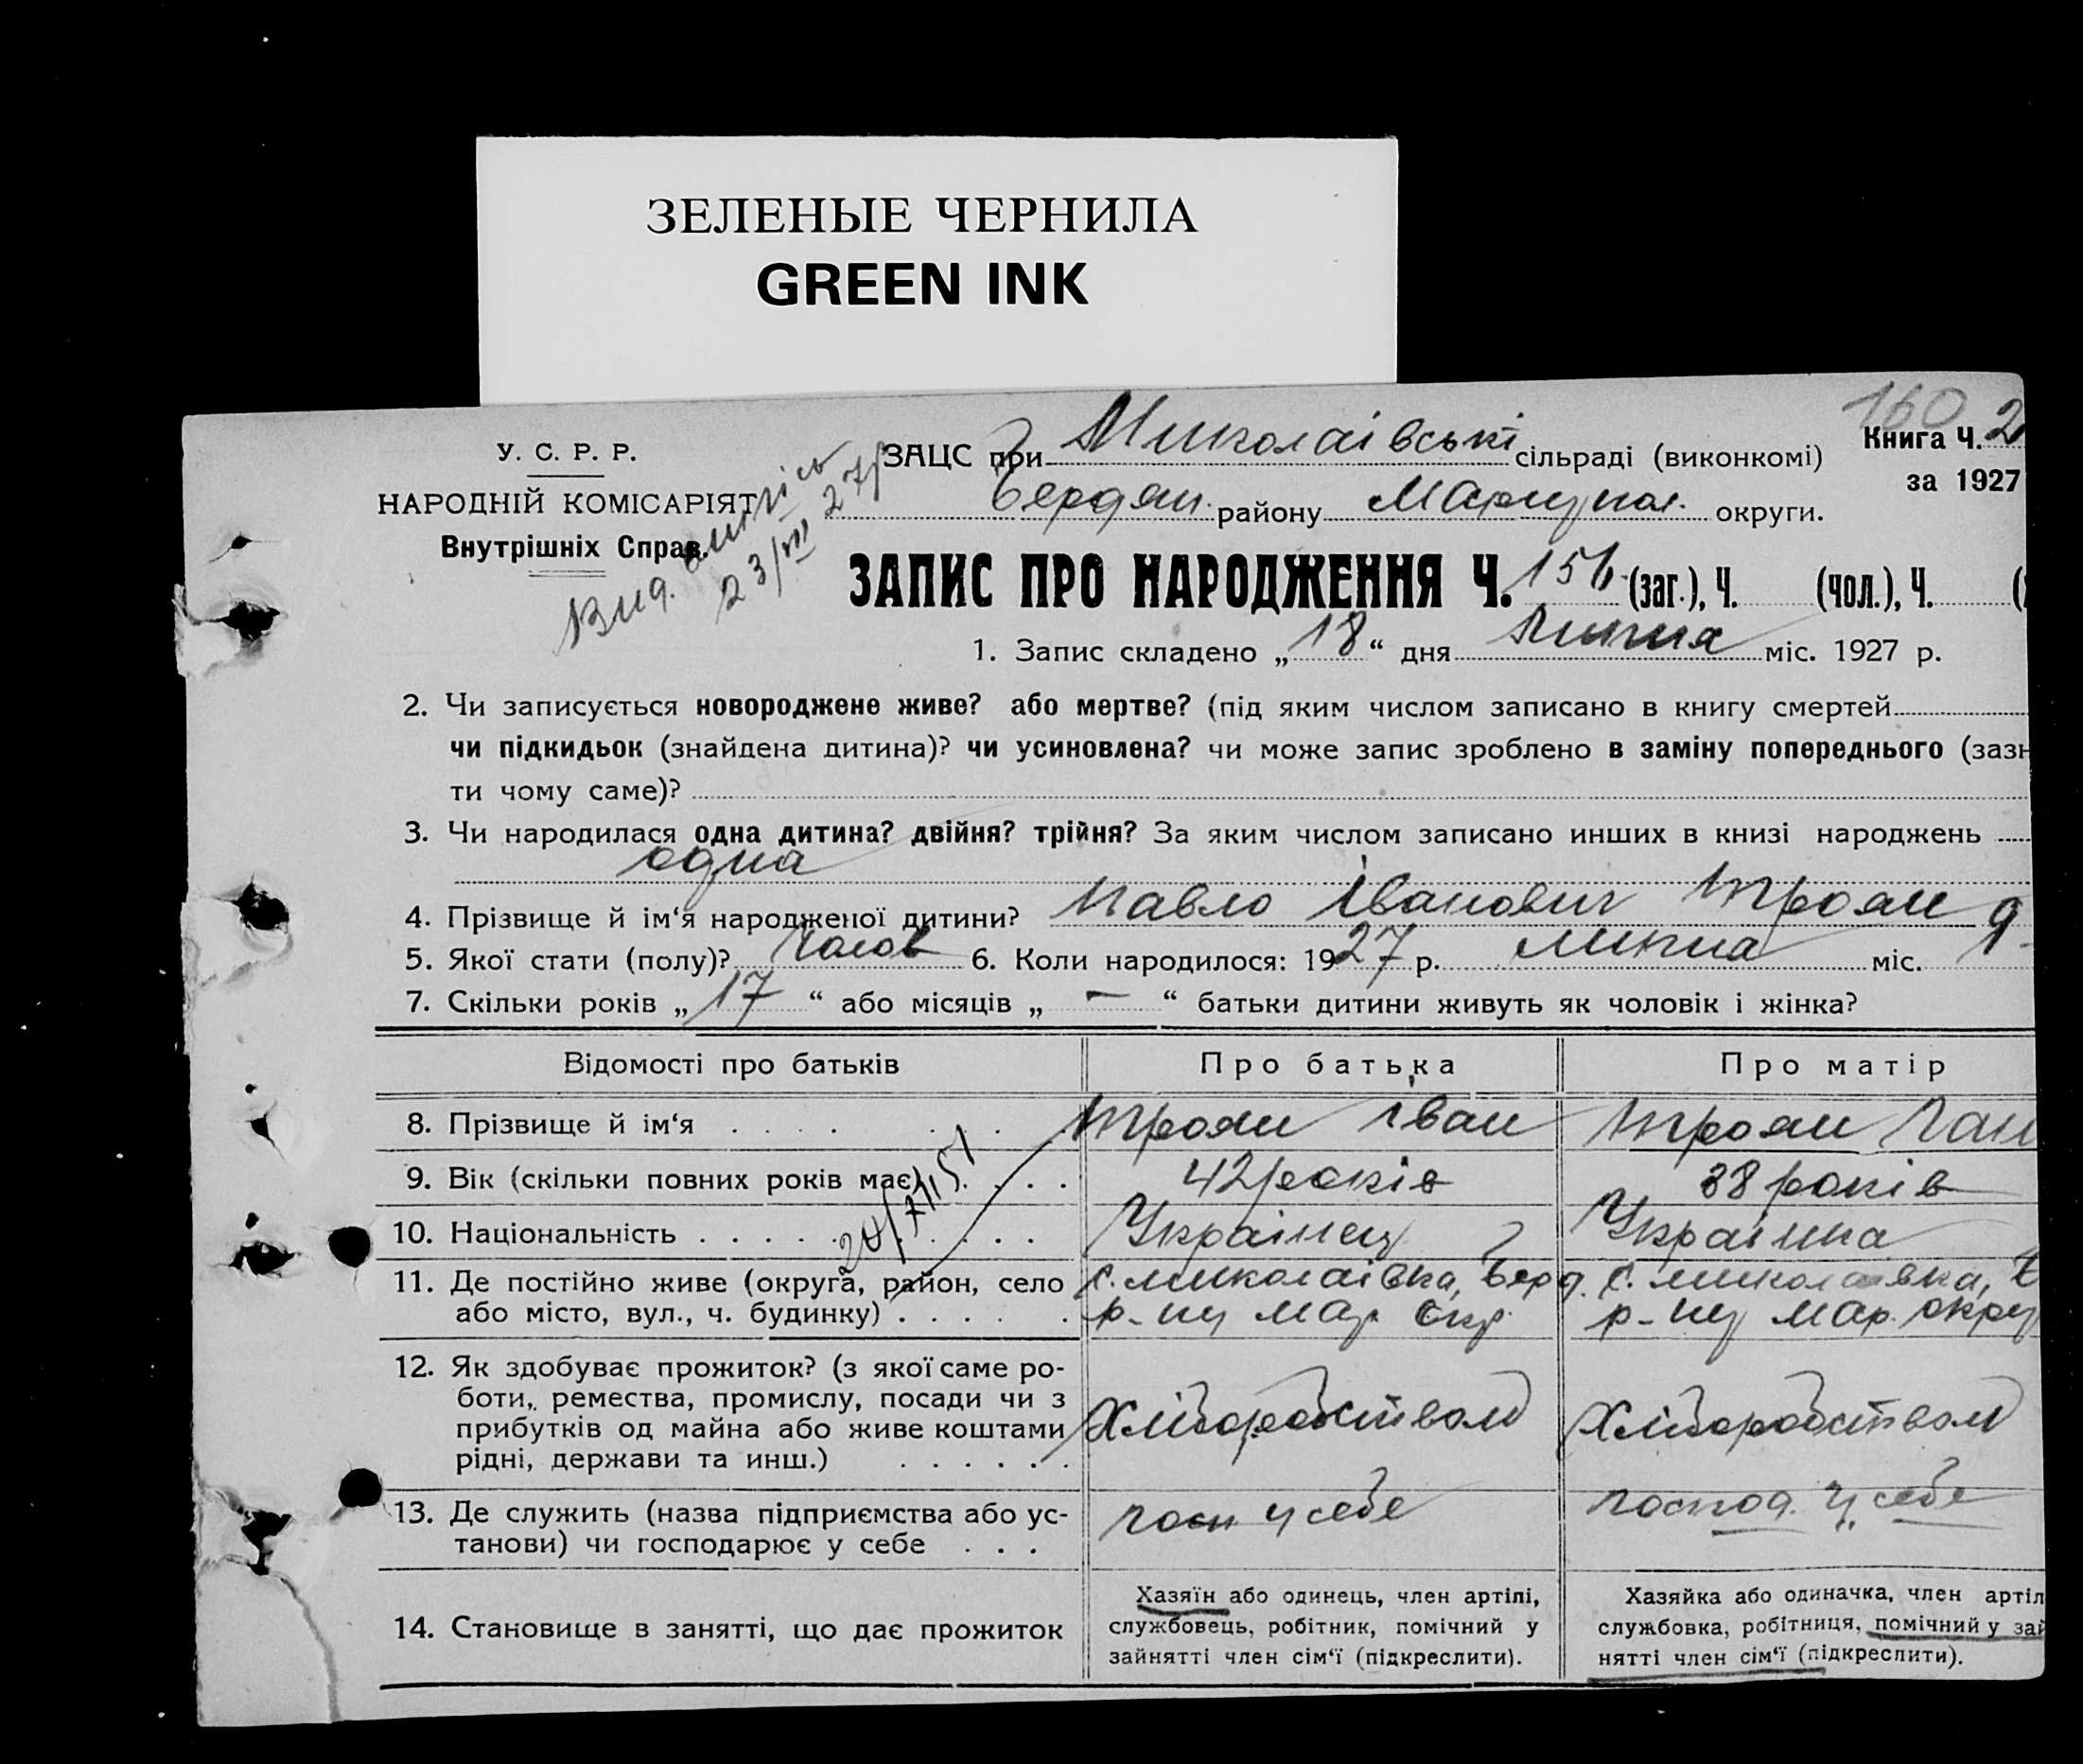 ЗЕЛЕНЫЕ ЧЕРНИЛА
GREEN INK
160
У. С. Р. Р.
НАРОДНІЙ КОМІСАРІЯТ
Внутрішніх Справ.
Вид. випись
23/VII 27р
ЗАЦС при Миколаівські сільраді (виконкомі)
Бердян. району Маріупол. округи.
Книга Ч. 2
за 1927
ЗАПИС ПРО НАРОДЖЕННЯ Ч. 156 (заг.), Ч. (чол.), Ч. (
1. Запис складено „ 18 “ дня Липня міс. 1927 р.
2. Чи записується новороджене живе? або мертве? (під яким числом записано в книгу смертей
чи підкидьок (знайдена дитина)? чи усиновлена? чи може запис зроблено в заміну попереднього (зазн
ти чому саме)?
3. Чи народилася одна дитина? двійня? трійня? За яким числом записано инших в книзі народжень
одна
4. Прізвище й ім‘я народженої дитини? Павло Іванович Троян
5. Якої стати (полу)? чолов 6. Коли народилося: 1927 р. липня міс. 9
7. Скільки років „ 17 “ або місяців „ – “ батьки дитини живуть як чоловік і жінка?
Відомості про батьків Про батька Про матір
8. Прізвище й ім‘я Троян Іван Троян Ган
9. Вік (скільки повних років має) 42 років 38 років
10. Національність Украінец Украінка
11. Де постійно живе (округа, район, село або місто, вул., ч. будинку) с. Миколаівка, Берд. р-ну Мар. Окр. с. Миколаівка, Б р-ну Мар. окру
12. Як здобуває прожиток? (з якої саме роботи, ремества, промислу, посади чи з прибутків од майна або живе коштами рідні, держави та инш.) Хліборобством Хліборобством
13. Де служить (назва підприємства або установи) чи господарює у себе госп у себе господ. у себе
14. Становище в занятті, що дає прожиток
Хазяїн або одинець, член артілі,
службовець, робітник, помічний у
зайнятті член сім‘ї (підкреслити).
Хазяйка або одиначка, член артіл
службовка, робітниця, помічний у зай
нятті член сім‘ї (підкреслити).